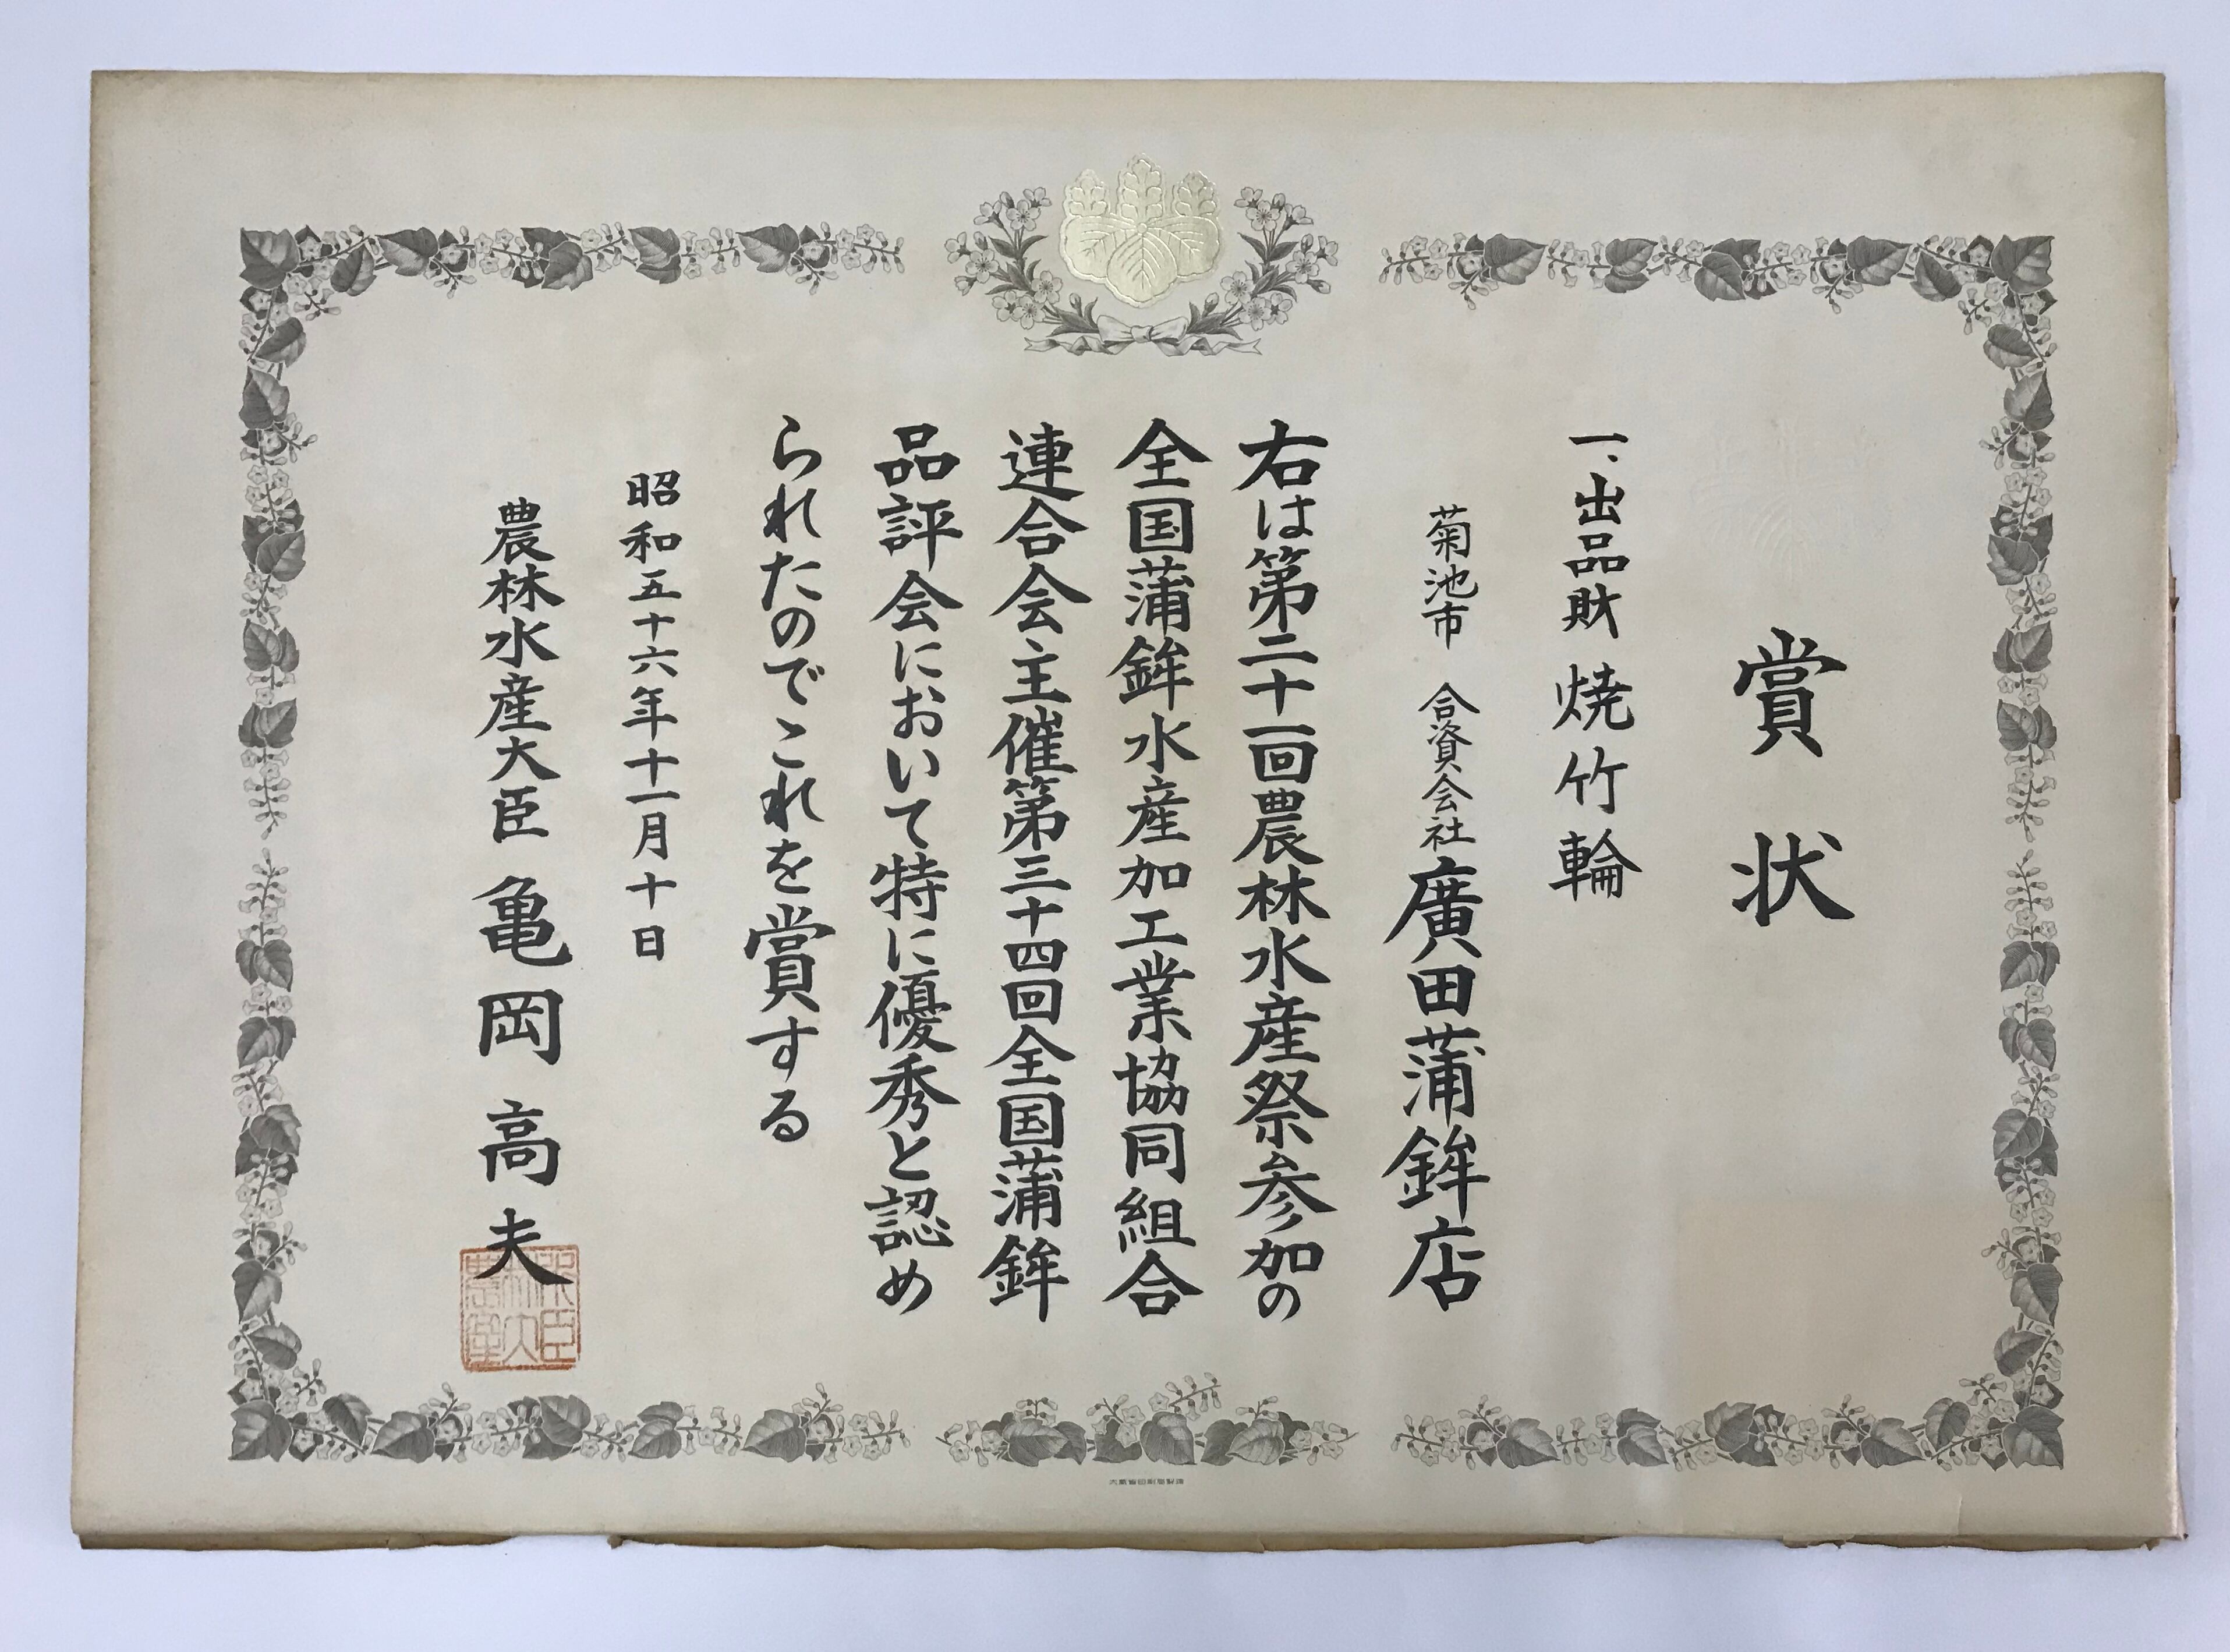 賞状
一、出品財 焼竹輪
菊池市 合資会社 廣田蒲鉾店
右は第二十回農林水産祭参加の
全国蒲鉾水産加工業協同組合
連合会主催第三十四回全国蒲鉾
品評会において特に優秀と認め
られたのでこれを賞する
昭和五十六年十一月十日
農林水産大臣 亀岡高夫
大蔵省印刷局製造